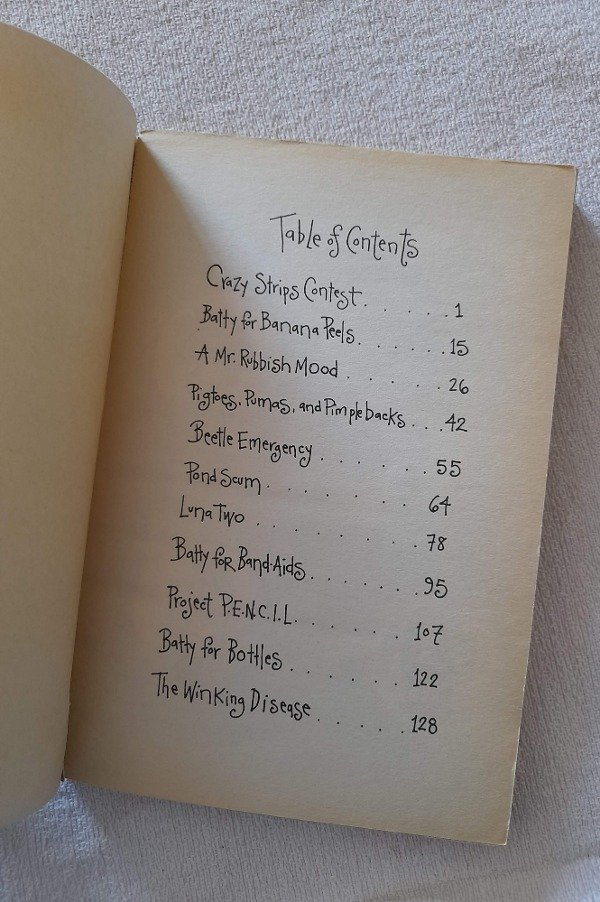 Table of Contents
Crazy Strips Contest . . . . . . 1
Batty for Banana Peels . . . . . . 15
A Mr. Rubbish Mood . . . . . . 26
Pigtoes, Pumas, and Pimplebacks . . . 42
Beetle Emergency . . . . . . 55
Pond Scum . . . . . . . . 64
Luna Two . . . . . . . . 78
Batty for Band-Aids . . . . . . . 95
Project P.E.N.C.I.L. . . . . . . 107
Batty for Bottles . . . . . . . 122
The Winking Disease . . . . . 128